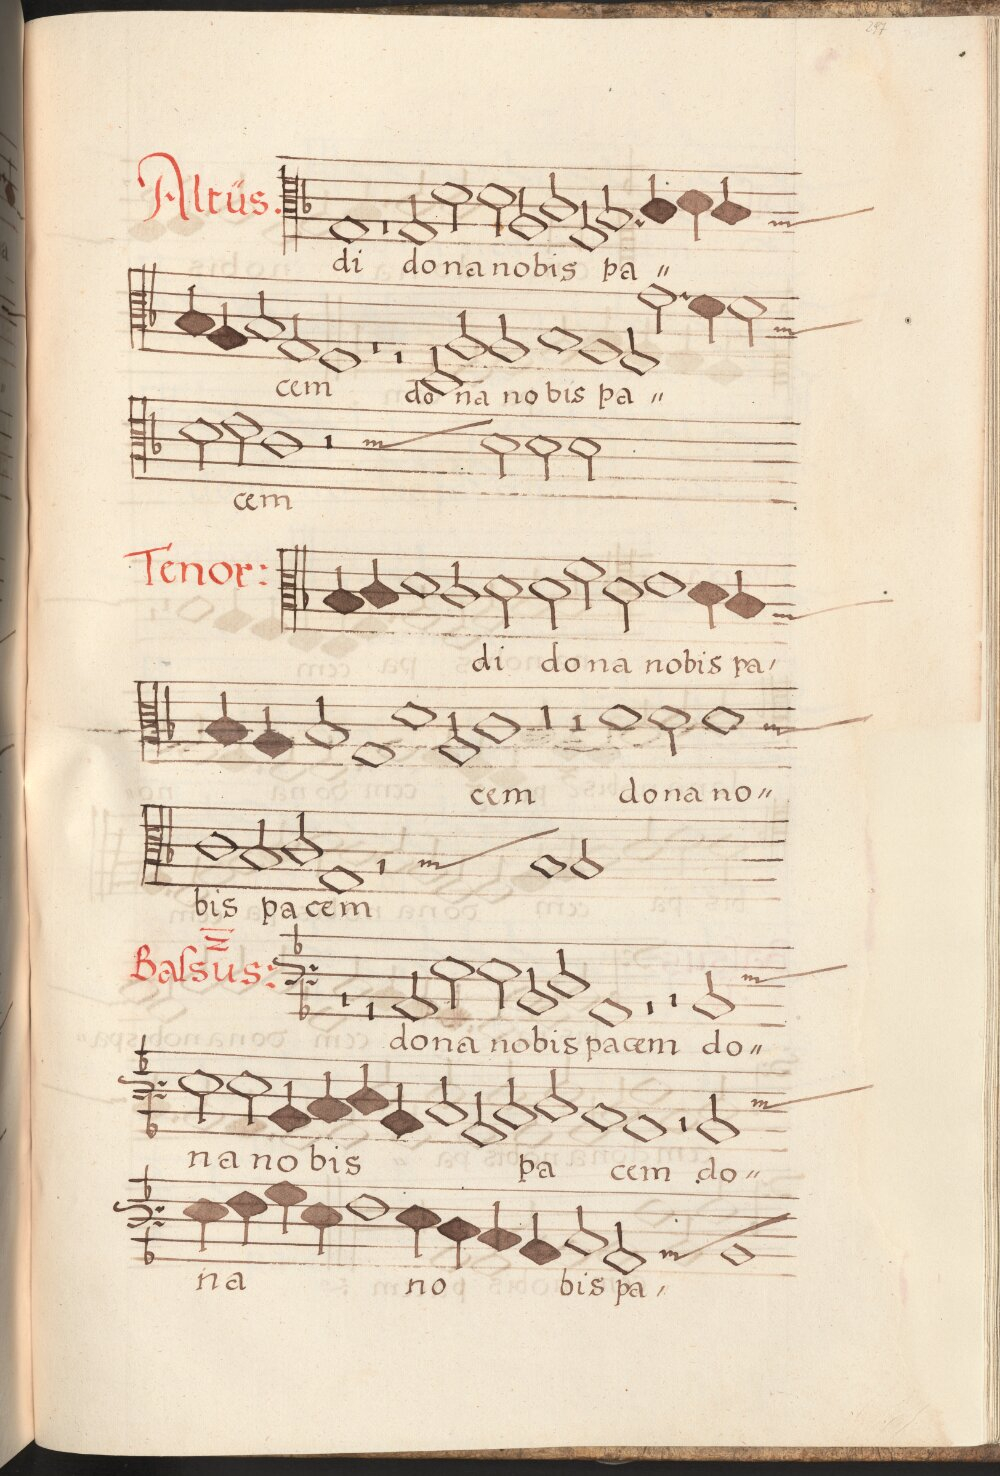 297
Altus.
di dona nobis pa "
cem dona nobis pa "
cem
Tenor:
di dona nobis pa,
cem dona no"
bis pacem
Bassus:
dona nobis pacem do"
na nobis pa cem do"
na no bis pa,